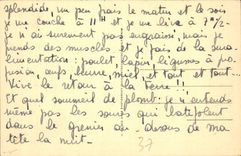 splendide, un peu frais le matin et le soir
je me couche à 11H et je me lève à 7H1/2-
je n'ai surement pas engraissé, mais je
prends des muscles et je fais de la sura-
limentation : poulet, lapin, légumes à pro-
fusion, œufs, beurre, miel, et tout et tout...
Vive le retour à la Terre !!
Et quel sommeil de plomb : je n'entends
même pas les souris qui galopent
dans le grenier au-dessus de ma
tête la nuit-